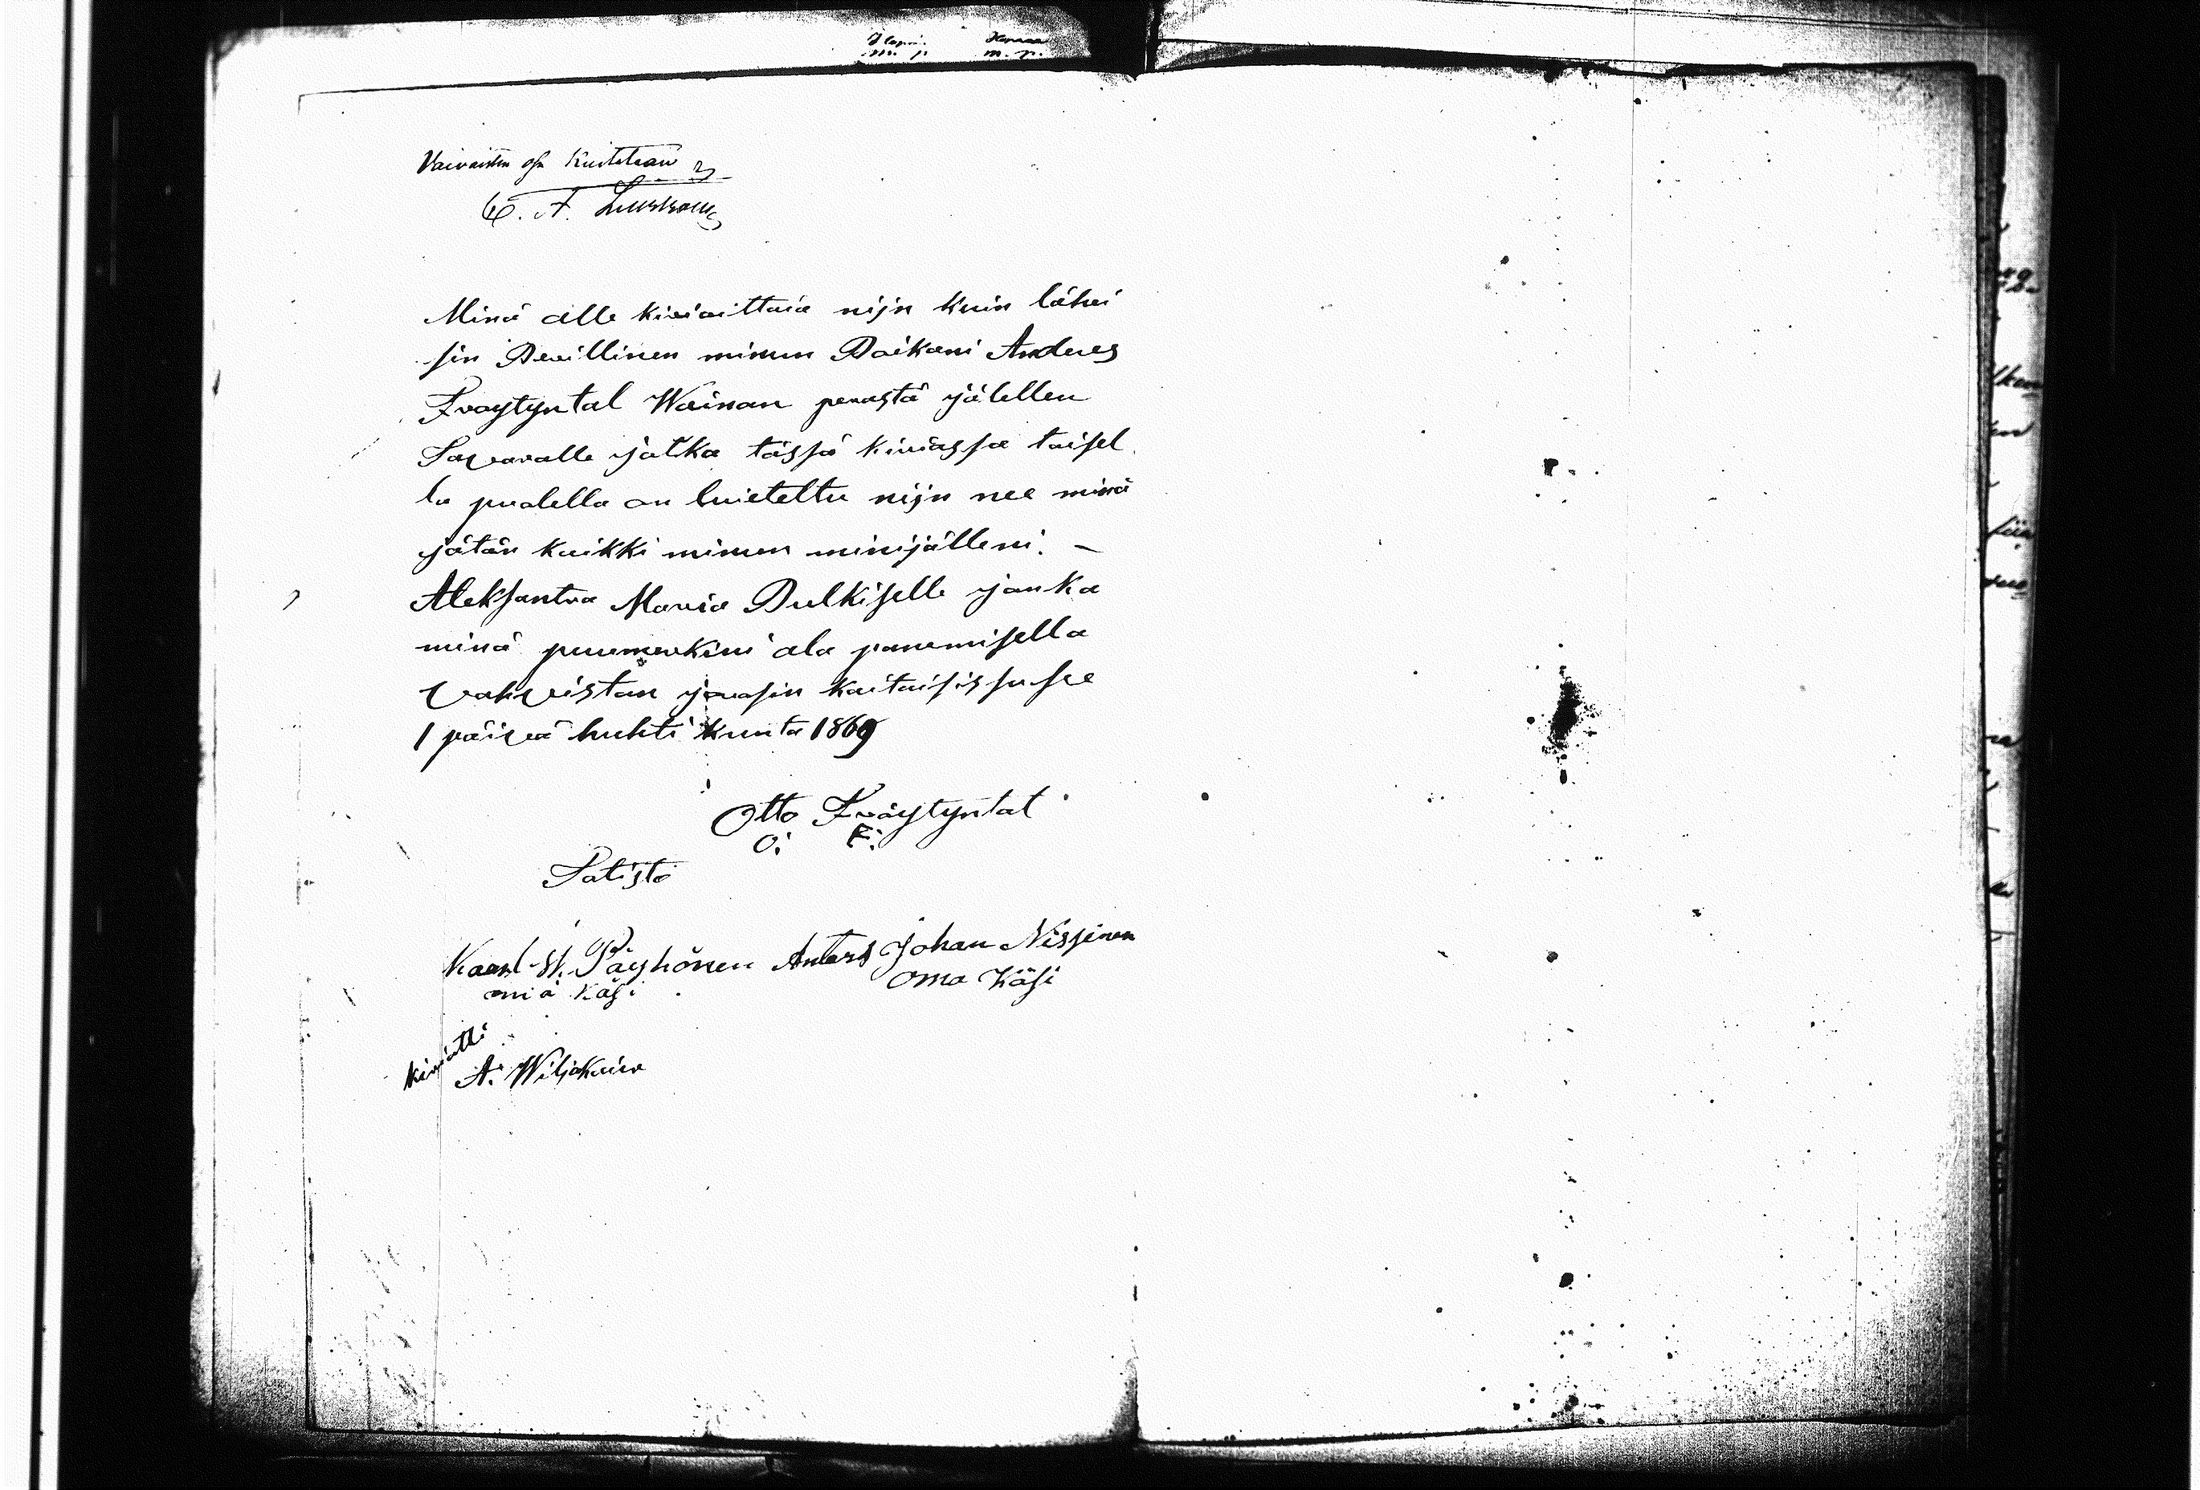 Vaivaisten osa kuitetaan
Minä alle kirioittaia nijn kuin lähei
sin Perillinen minun Poikani Anders
Fröytyntal Wainan perästä jälellen
Tavaralle jotka tässä kiriassa toisel
la puolella on lueteltu nijn nee minä
jätän kaikki minun minijälleni. —
Aleksantra Maria Pulkiselle jonka
minä puumerkini ala panemisella
vahvistan jorosin kaitaisissusse
1 päivä huhti kunta 1869
Otto Fröytyntal
O. F.
Totista
Kaarl W. Päyhönen Anters Johan Nissinen
omā käsi oma Käsi
kirioitti
A. Wiljakain